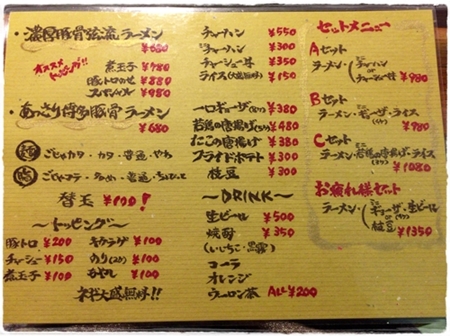 ・濃厚豚骨弦流ラーメン
¥680
オススメ
トッピング!!
煮玉子 ¥780
豚トロのせ ¥880
スペシャル ¥980
・あっさり博多豚骨ラーメン
¥680
麺 ごじゃカタ・カタ・普通・やわ
ごじゃコテ・多め・普通・ちょびっと
替玉 ¥100!
〜トッピング〜
豚トロ ¥200 キクラゲ ¥100
チャーシュー ¥150 のり(2枚) ¥100
煮玉子 ¥100 もやし ¥100
ネギ大盛無料!!
チャーハン ¥550
半チャーハン ¥300
チャーシュー丼 ¥350
ライス(大盛無料) ¥150
一口ギョーザ(8ヶ) ¥380
若鶏の唐揚げ(5ヶ) ¥480
たこの唐揚げ ¥380
フライドポテト ¥300
枝豆 ¥300
〜DRINK〜
生ビール ¥500
焼酎 ¥350
(いいちこ・黒霧)
コーラ
オレンジ
ウーロン茶 ALL ¥200
セットメニュー
Aセット
ラーメン・(半チャーハン
or
チャーシュー丼 ¥980
Bセット
ラーメン・ギョーザ・ライス
¥980
Cセット
ラーメン・若鶏の唐揚げ・ライス
¥1080
お疲れ様セット
ラーメン・(ギョーザ・生ビール
or
枝豆 ¥1350